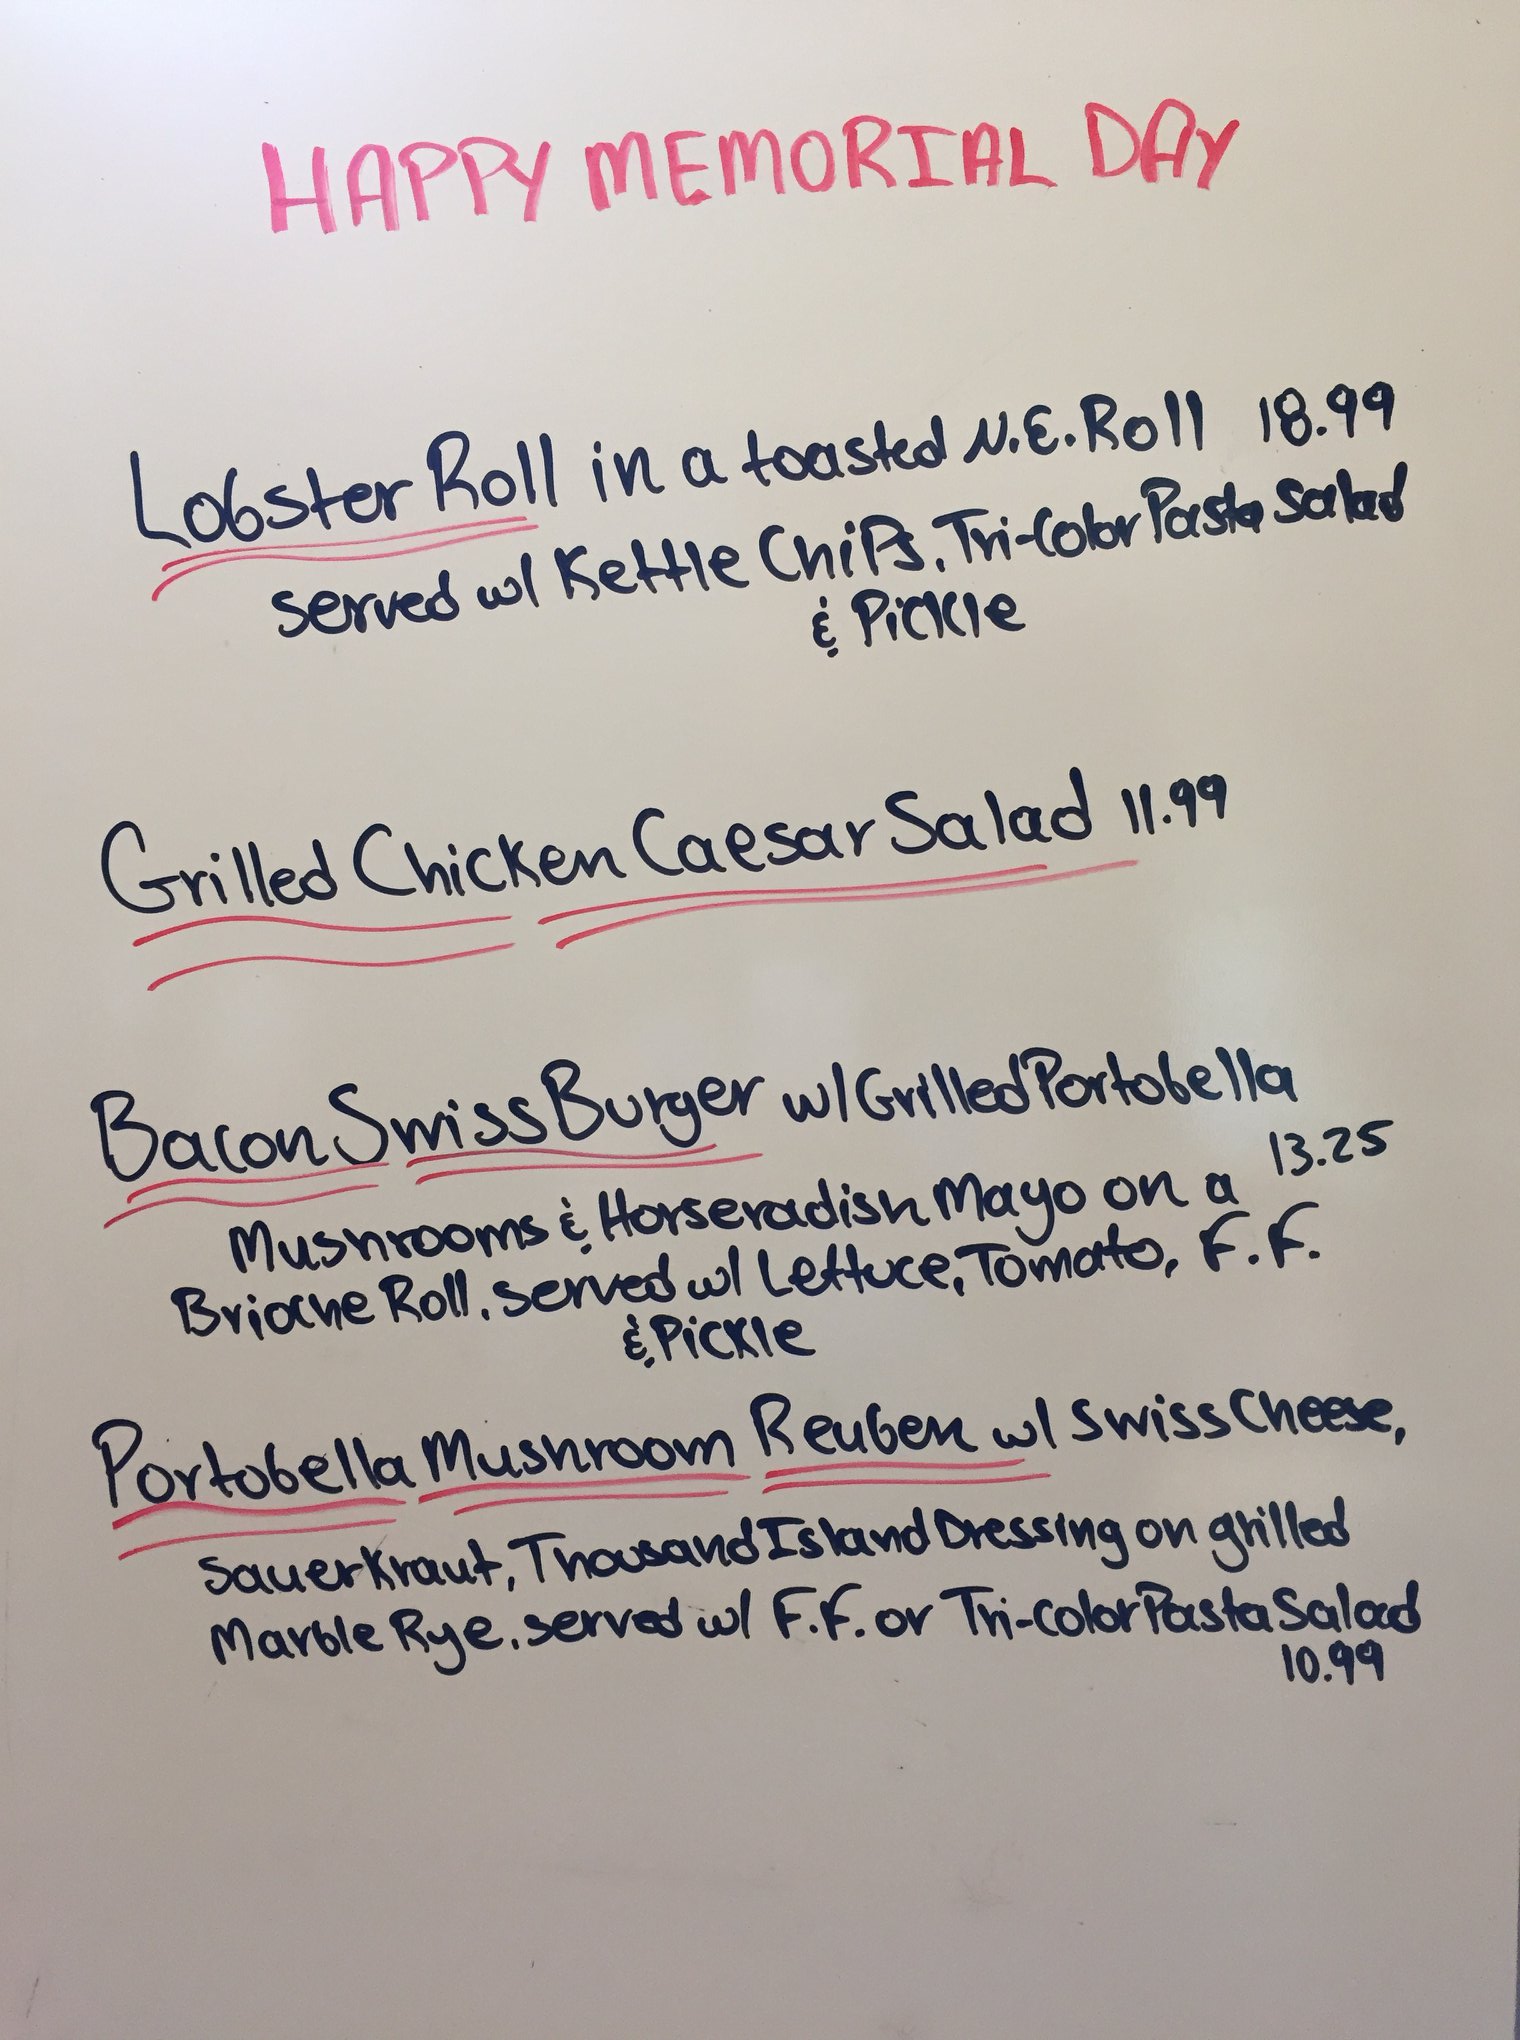 HAPPY MEMORIAL DAY
Lobster Roll in a toasted N.E. Roll 18.99
served w/ Kettle Chips, Tri-Color Pasta Salad
& Pickle
Grilled Chicken Caesar Salad 11.99
Bacon Swiss Burger w/ Grilled Portobella
Mushrooms & Horseradish Mayo on a 13.25
Brioche Roll, served w/ Lettuce, Tomato, F.F.
& Pickle
Portobella Mushroom Reuben w/ Swiss Cheese,
Sauerkraut, Thousand Island Dressing on grilled
Marble Rye, served w/ F.F. or Tri-Color Pasta Salad
10.99